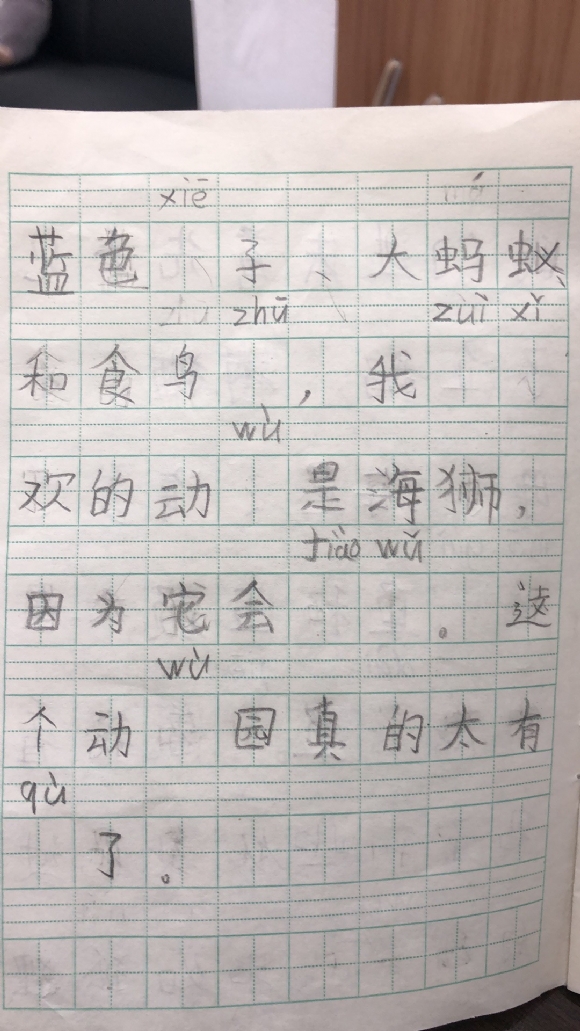 xiē
蓝色 子、大蚂蚁
zhū zuì xǐ
和食鸟 ，我
wù
欢的动 是海狮，
tiào wǔ
因为它会 。这
wù
个动 园真的太有
qù
了。